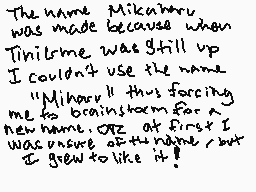 The name Mikaharu
was made because when
Tinierme was still up
I couldn't use the name
"Miharu" thus forcing
me to brainstorm for a
new name. at first I
was unsure of the name, but
I grew to like it!